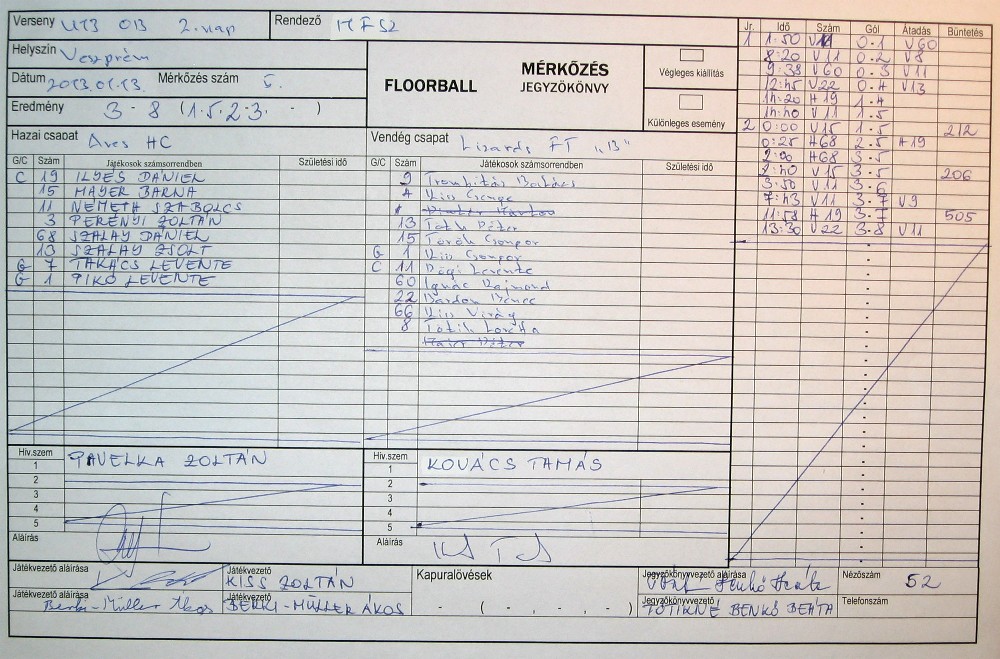 Verseny U13 OB 2. nap
Rendező MFSZ
Helyszín Veszprém
Dátum 2013.01.13. Mérkőzés szám 5.
Eredmény 3 - 8 (1-5, 2-3, - )
FLOORBALL
MÉRKŐZÉS
JEGYZŐKÖNYV
Végleges kiállítás
Különleges esemény
Hazai csapat Ares HC
G/C Szám Játékosok számsorrendben Születési idő
C 19 ILYÉS DÁNIEL
15 MAYER BARNA
11 NÉMETH SZABOLCS
3 PERÉNYI ZOLTÁN
68 SZALAY DÁNIEL
13 SZALAY ZSOLT
G 7 TAKÁCS LEVENTE
G 1 PIKÓ LEVENTE
Vendég csapat Lizards FT "13"
G/C Szám Játékosok számsorrendben Születési idő
9 Trombitás Balázs
Kiss Csenge
13 Tóth Péter
15 Török Csongor
G 1 Kiss Csongor
C 11 Levente
60 Ignác Rajmond
22 Bardon Bence
66 Kiss Virág
8 Totik Loretta
Jr. Idő Szám Gól Átadás Büntetés
1 1:50 V11 0-1 V60
8:20 V11 0-2 V8
9:38 V60 0-3 V11
12:45 V22 0-4 V13
14:20 H19 1-4
14:40 V11 1-5
2 0:00 V15 1-5 212
0:25 H68 2-5 H19
2:00 H68 3-5
2:40 V15 3-5 206
3:50 V11 3-6
7:43 V11 3-7 V9
11:58 H19 3-7 505
13:30 V22 3-8 V11
Hiv.szem
1 PAVELKA ZOLTÁN
2
3
4
5
Aláírás
Hiv.szem
1 KOVÁCS TAMÁS
2
3
4
5
Aláírás
Játékvezető aláírása
Játékvezető KISS ZOLTÁN
Játékvezető aláírása Berki-Müller Ákos
Játékvezető BERKI-MÜLLER ÁKOS
Kapuralövések
- ( - , - , - )
Jegyzőkönyvvezető aláírása
Jegyzőkönyvvezető TÓTIKNÉ BENKŐ BEÁTA
Nézőszám 52
Telefonszám